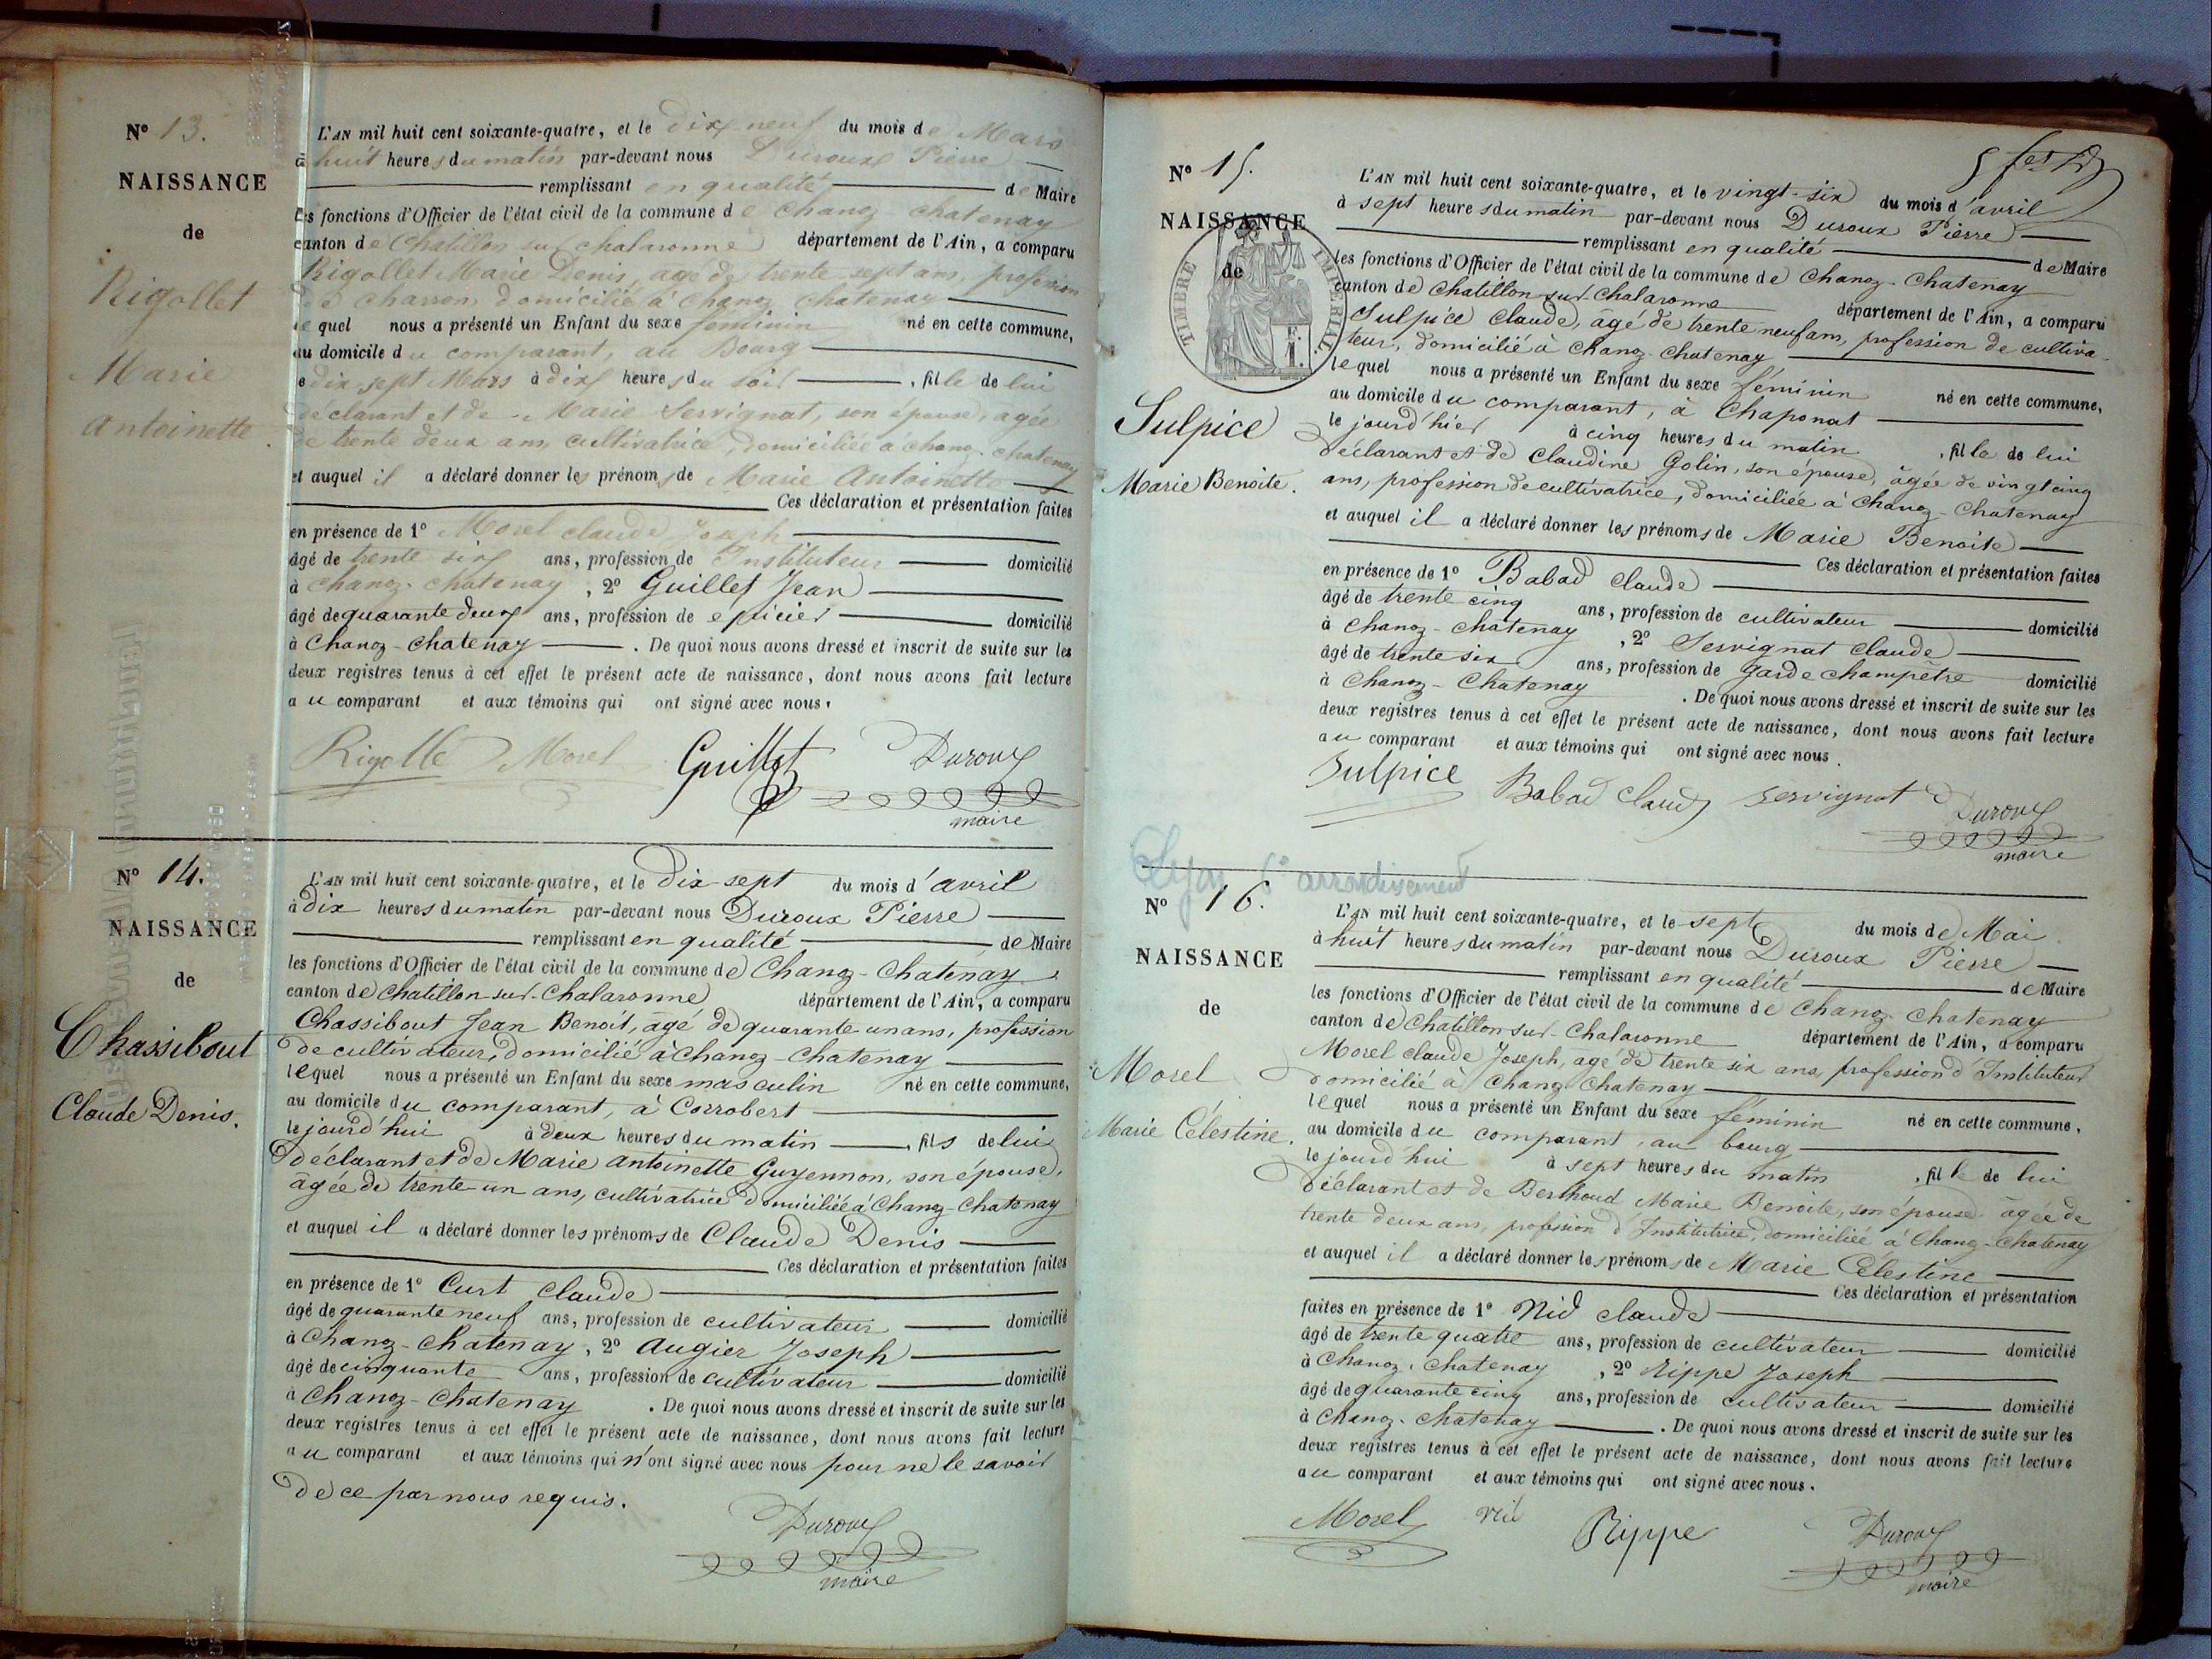 N° 13.
NAISSANCE
de
Rigollet
Marie
Antoinette.
L'AN mil huit cent soixante-quatre, et le dix neuf du mois de Mars
à huit heures du matin par-devant nous Duroux Pierre
remplissant en qualité de Maire
les fonctions d'Officier de l'état civil de la commune de Chanoz chatenay
canton de Chatillon sur chalaronne département de l'Ain, a comparu
Rigollet Marie Denis, agé de trente-sept ans, profession
de charron, domicilié à Chanoz chatenay
le quel nous a présenté un Enfant du sexe féminin né en cette commune,
au domicile du comparant, au Bourg
le dix sept Mars à dix heures du soir, fille de lui
déclarant et de Marie Servignat, son épouse, agée
de trente deux ans, cultivatrice, domiciliée à chanoz-chatenay
et auquel il a déclaré donner les prénoms de Marie Antoinette
Ces déclaration et présentation faites
en présence de 1° Morel claude Joseph
âgé de trente six ans, profession de Instituteur domicilié
à Chanoz-chatenay, 2° Guillet Jean
âgé de quarante deux ans, profession de epicier domicilié
à Chanoz-chatenay. De quoi nous avons dressé et inscrit de suite sur les
deux registres tenus à cet effet le présent acte de naissance, dont nous avons fait lecture
au comparant et aux témoins qui ont signé avec nous.
Rigollé Morel Guillet Duroux
maire
N° 14.
NAISSANCE
de
Chassibout
Claude Denis.
L'AN mil huit cent soixante-quatre, et le Dix-sept du mois d'avril
à dix heures du matin par-devant nous Duroux Pierre
remplissant en qualité de Maire
les fonctions d'Officier de l'état civil de la commune de Chanoz-Chatenay
canton de Chatillon-sur-Chalaronne département de l'Ain, a comparu
Chassibout Jean Benoit, âgé de quarante un ans, profession
de cultivateur, domicilié à Chanoz-Chatenay
lequel nous a présenté un Enfant du sexe masculin né en cette commune,
au domicile du comparant, à Corrobert
le jourd'hui à deux heures du matin, fils de lui
déclarant et de Marie Antoinette Guyennon, son épouse,
agée de trente un ans, cultivatrice domiciliée à Chanoz-Chatenay
et auquel il a déclaré donner les prénoms de Claude Denis
Ces déclaration et présentation faites
en présence de 1° Curt Claude
âgé de quarante neuf ans, profession de cultivateur domicilié
à Chanoz-Chatenay, 2° Augier Joseph
âgé de cinquante ans, profession de cultivateur domicilié
à Chanoz-Chatenay. De quoi nous avons dressé et inscrit de suite sur les
deux registres tenus à cet effet le présent acte de naissance, dont nous avons fait lecture
au comparant et aux témoins qui n'ont signé avec nous pour ne le savoir
de ce par nous requis.
Duroux
maire
N° 15.
NAISSANCE
de
TIMBRE IMPERIAL
Sulpice
Marie Benoite.
L'AN mil huit cent soixante-quatre, et le vingt-six du mois d'avril
à sept heures du matin par-devant nous Duroux Pierre
remplissant en qualité de Maire
les fonctions d'Officier de l'état civil de la commune de Chanoz-Chatenay
canton de Chatillon-sur-Chalaronne département de l'Ain, a comparu
Sulpice Claude, âgé de trente neuf ans, profession de cultiva-
teur, domicilié à Chanoz-Chatenay
lequel nous a présenté un Enfant du sexe féminin né en cette commune,
au domicile du comparant, à Chaponat
le jourd'hier à cinq heures du matin, fille de lui
déclarant et de Claudine Golin, son épouse, âgée de vingt cinq
ans, profession de cultivatrice, domiciliée à Chanoz-Chatenay
et auquel il a déclaré donner les prénoms de Marie Benoite
Ces déclaration et présentation faites
en présence de 1° Babad Claude
âgé de trente cinq ans, profession de cultivateur domicilié
à Chanoz-Chatenay, 2° Servignat Claude
âgé de trente six ans, profession de garde champêtre domicilié
à Chanoz-Chatenay. De quoi nous avons dressé et inscrit de suite sur les
deux registres tenus à cet effet le présent acte de naissance, dont nous avons fait lecture
au comparant et aux témoins qui ont signé avec nous.
Sulpice Babad Claude servignat Duroux
maire
Lyon arrondissement
N° 16.
NAISSANCE
de
Morel
Marie Célestine.
L'AN mil huit cent soixante-quatre, et le sept du mois de Mai
à huit heures du matin par-devant nous Duroux Pierre
remplissant en qualité de Maire
les fonctions d'Officier de l'état civil de la commune de Chanoz Chatenay
canton de Chatillon-sur-Chalaronne département de l'Ain, a comparu
Morel Claude Joseph, agé de trente six ans, profession d'Instituteur
domicilié à Chanoz Chatenay
lequel nous a présenté un Enfant du sexe féminin né en cette commune,
au domicile du comparant, au bourg
le jourd'hui à sept heures du matin, fille de lui
déclarant et de Berthoud Marie Benoite, son épouse âgée de
trente deux ans, profession d'Institutrice, domiciliée à Chanoz-Chatenay
et auquel il a déclaré donner les prénoms de Marie Célestine
Ces déclaration et présentation
faites en présence de 1° Nid Claude
âgé de trente quatre ans, profession de cultivateur domicilié
à Chanoz-Chatenay, 2° Rippe Joseph
âgé de quarante cinq ans, profession de cultivateur domicilié
à Chanoz-Chatenay. De quoi nous avons dressé et inscrit de suite sur les
deux registres tenus à cet effet le présent acte de naissance, dont nous avons fait lecture
au comparant et aux témoins qui ont signé avec nous.
Morel nid Rippe Duroux
maire